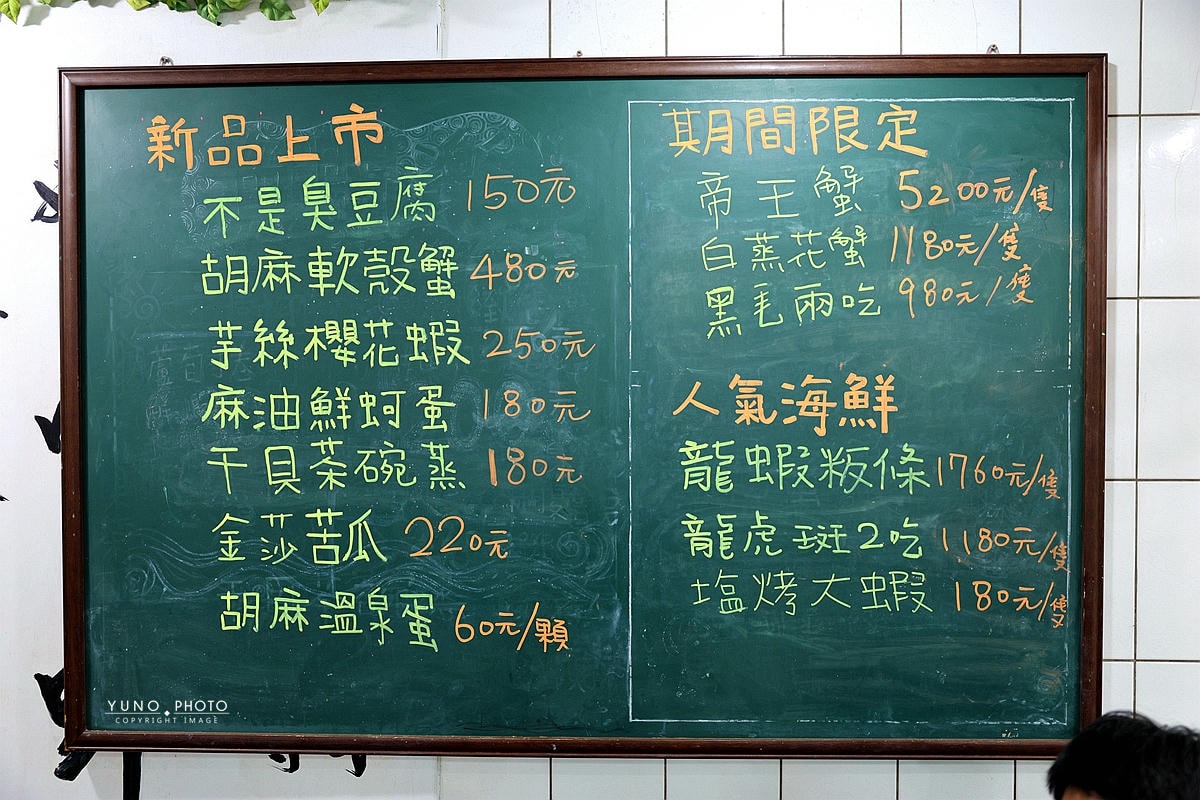 新品上市
不是臭豆腐 150元
胡麻軟殼蟹 480元
芋絲櫻花蝦 250元
麻油鮮蚵蛋 180元
干貝茶碗蒸 180元
金莎苦瓜 220元
胡麻溫泉蛋 60元/顆
期間限定
帝王蟹 5200元/隻
白蒸花蟹 1180元/隻
黑毛兩吃 980元/隻
人氣海鮮
龍蝦粄條 1760元/隻
龍虎斑2吃 1180元/隻
塩烤大蝦 180元/隻
YUNO PHOTO
COPYRIGHT IMAGE